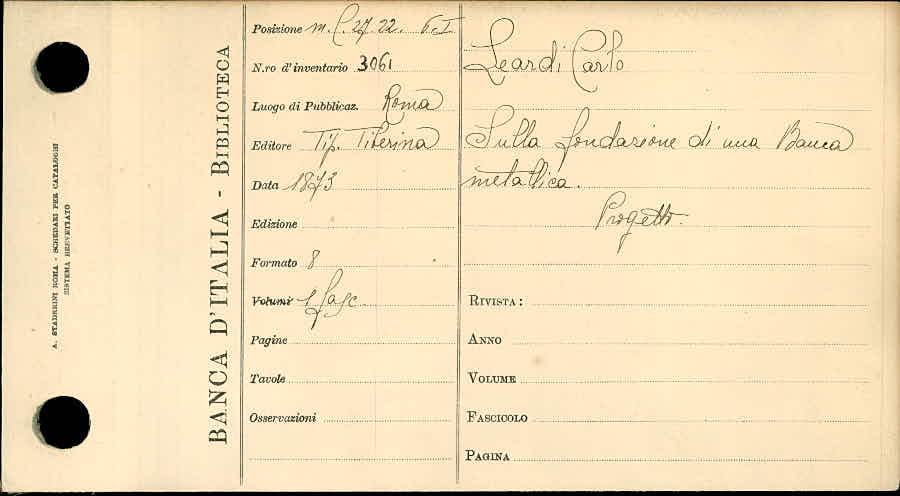 A. STADERINI ROMA - SCHEDARI PER CATALOGHI
SISTEMA BREVETTATO
BANCA D'ITALIA - BIBLIOTECA
Posizione m. C. 27. 22. F. I
N.ro d'inventario 3061
Luogo di Pubblicaz. Roma
Editore Tip. Tiberina
Data 1873
Edizione
Formato 8
Volumi 1 Fasc.
Pagine
Tavole
Osservazioni
Leardi Carlo
Sulla fondazione di una Banca
metallica.
Progetto.
RIVISTA:
ANNO
VOLUME
FASCICOLO
PAGINA